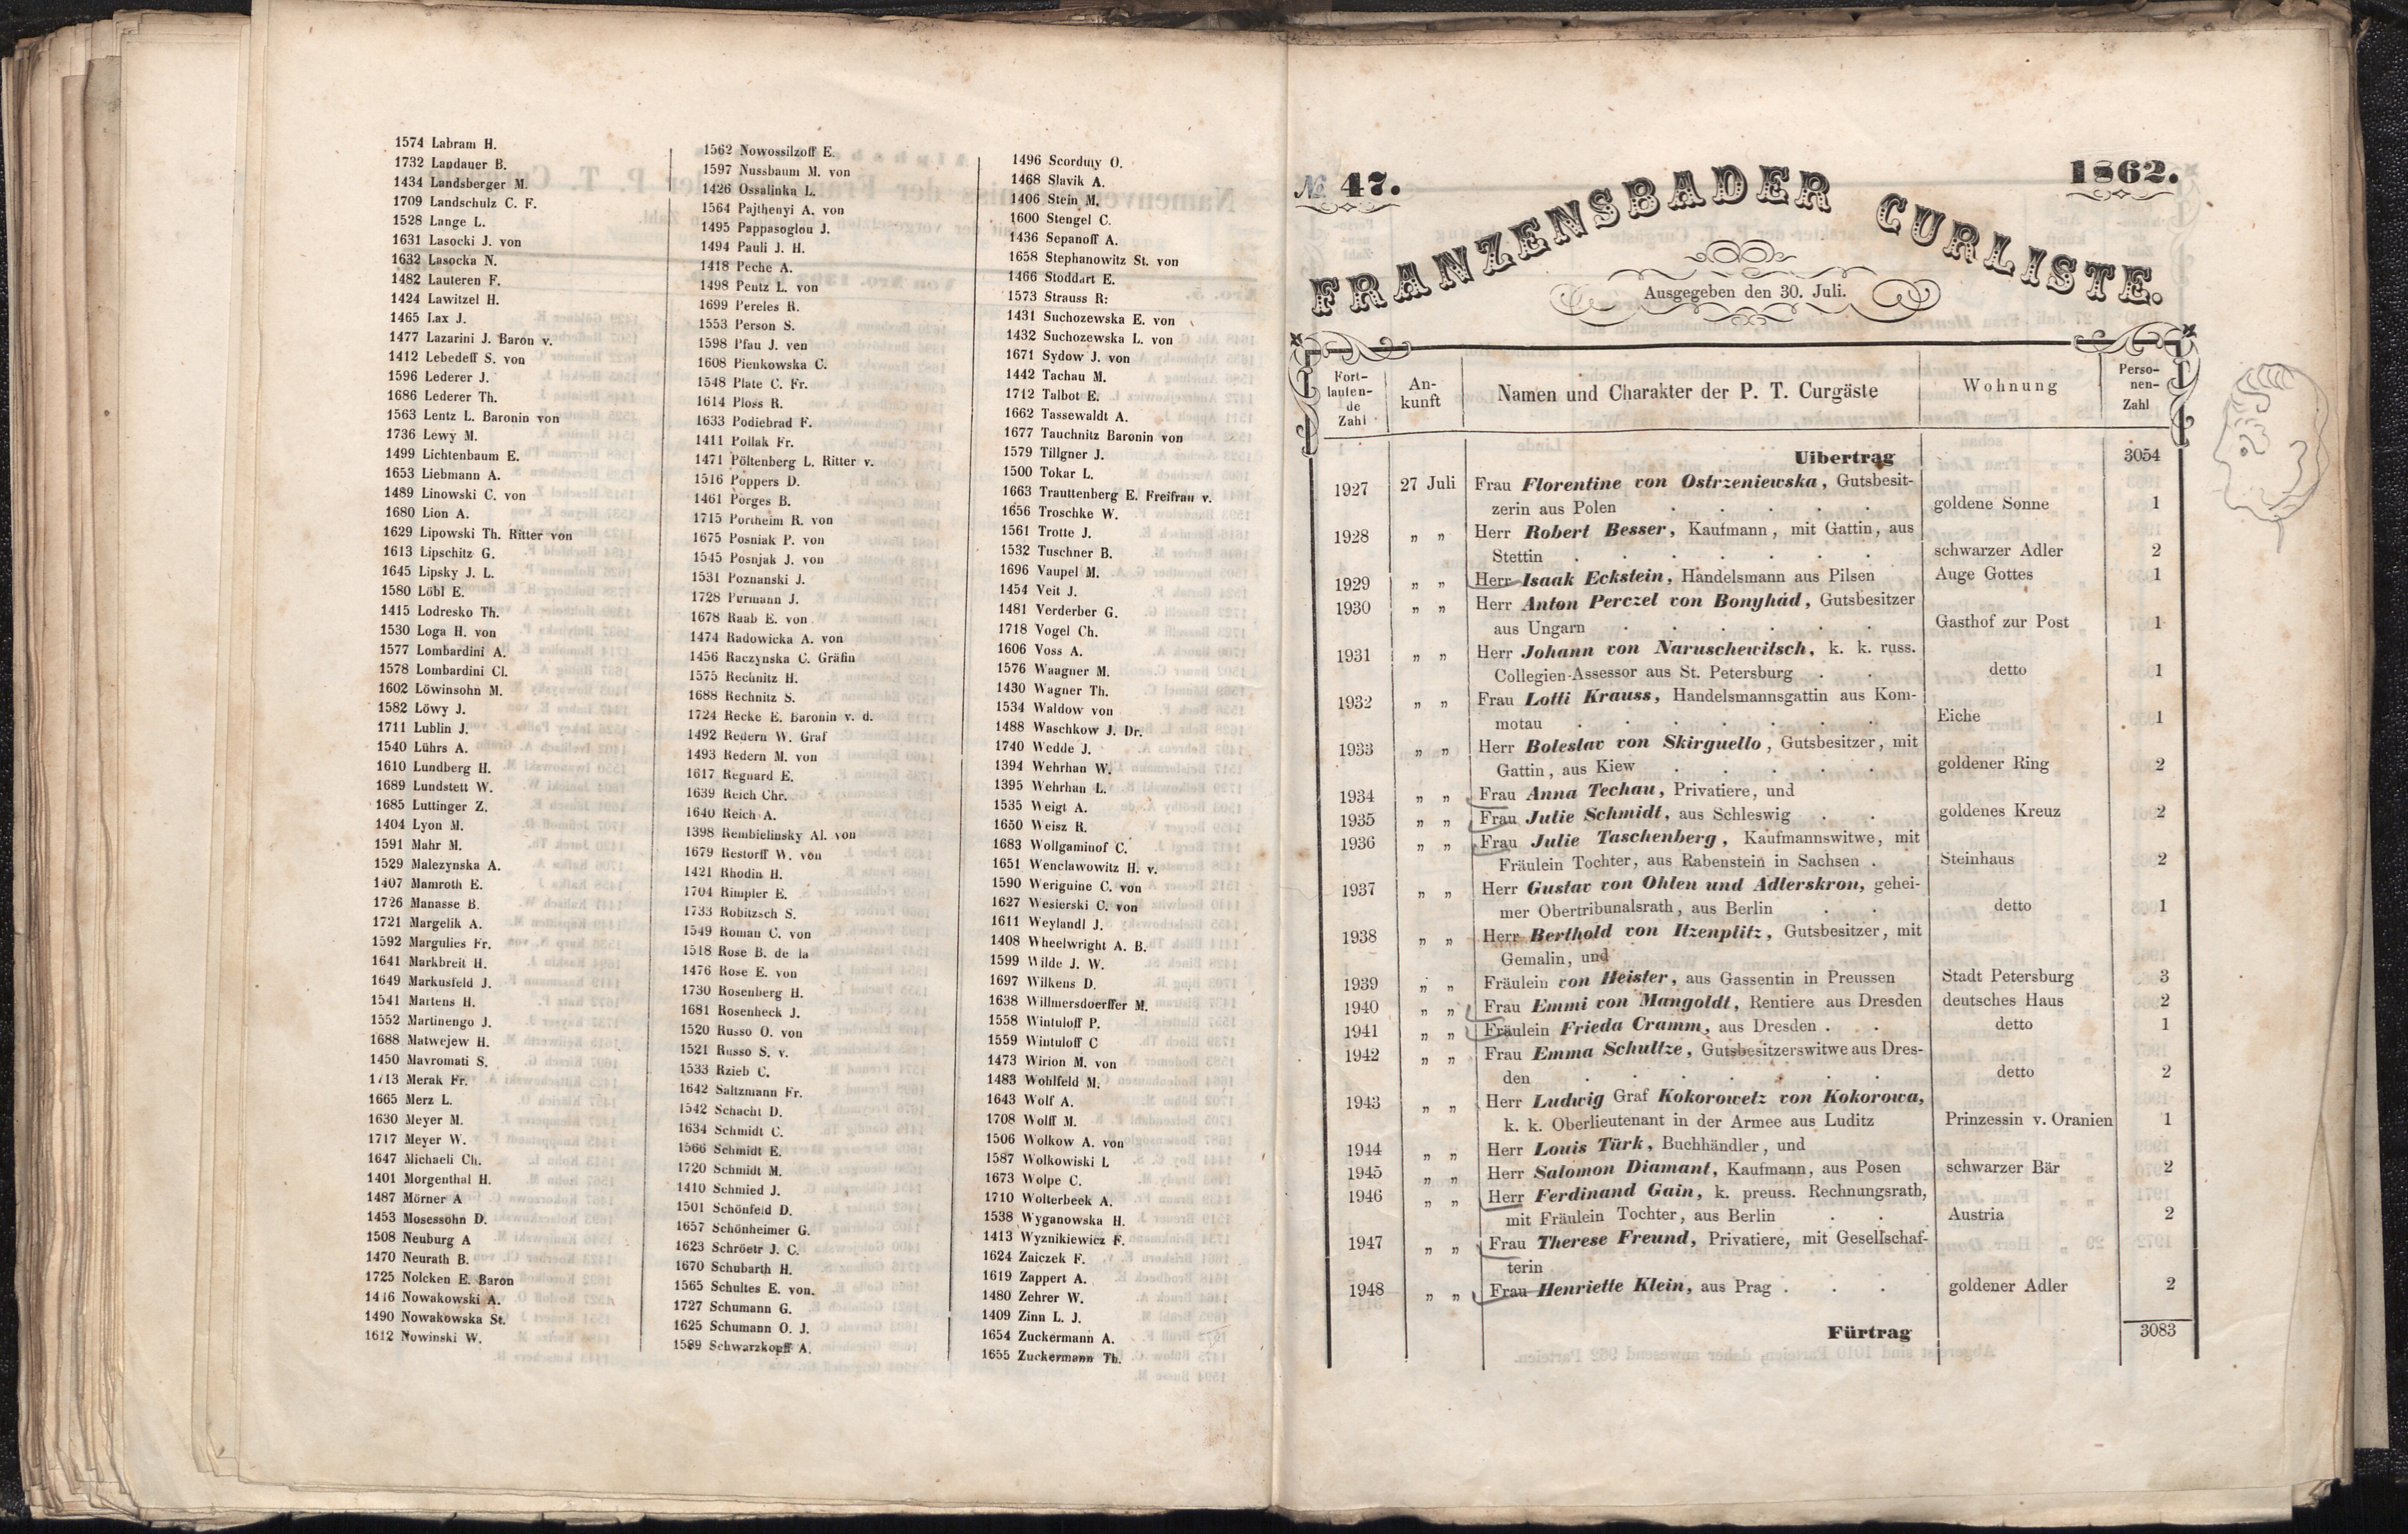 1574 Labram H.
1732 Landauer B.
1434 Landsberger M.
1709 Landschulz C. F.
1528 Lange L.
1631 Lasocki J. von
1632 Lasocka N.
1482 Lauteren F.
1424 Lawitzel H.
1465 Lax J.
1477 Lazarini J. Baron v.
1412 Lebedeff S. von
1596 Lederer J.
1686 Lederer Th.
1563 Lentz L. Baronin von
1736 Lewy M.
1499 Lichtenbaum E.
1653 Liebmann A.
1489 Linowski C. von
1680 Lion A.
1629 Lipowski Th. Ritter von
1613 Lipschitz G.
1645 Lipsky J. L.
1580 Löbl E.
1415 Lodresko Th.
1530 Loga H. von
1577 Lombardini A.
1578 Lombardini Cl.
1602 Löwinsohn M.
1582 Löwy J.
1711 Lublin J.
1540 Lührs A.
1610 Lundberg H.
1689 Lundstett W.
1685 Luttinger Z.
1404 Lyon M.
1591 Mahr M.
1529 Malezynska A.
1407 Mamroth E.
1726 Manasse B.
1721 Margelik A.
1592 Margulies Fr.
1641 Markbreit H.
1649 Markusfeld J.
1541 Martens H.
1552 Martinengo J.
1688 Matwejew H.
1450 Mavromati S.
1713 Merak Fr.
1665 Merz L.
1630 Meyer M.
1717 Meyer W.
1647 Michaeli Ch.
1401 Morgenthal H.
1487 Mörner A
1453 Mosessohn D.
1508 Neuburg A
1470 Neurath B.
1725 Nolcken E. Baron
1416 Nowakowski A.
1490 Nowakowska St.
1612 Nowinski W.
1562 Nowossilzoff E.
1597 Nussbaum M. von
1426 Ossalinka L.
1564 Pajthenyi A. von
1495 Pappasoglou J.
1494 Pauli J. H.
1418 Peche A.
1498 Peutz L. von
1699 Pereles R.
1553 Person S.
1598 Pfau J. ven
1608 Pienkowska C.
1548 Plate C. Fr.
1614 Ploss R.
1633 Podiebrad F.
1411 Pollak Fr.
1471 Pöltenberg L. Ritter v.
1516 Poppers D.
1461 Porges B.
1715 Portheim R. von
1675 Posniak P. von
1545 Posnjak J. von
1531 Poznanski J.
1728 Purmann J.
1678 Raab E. von
1474 Radowicka A. von
1456 Raczynska C. Gräfin
1575 Rechnitz H.
1688 Rechnitz S.
1724 Recke E. Baronin v. d.
1492 Redern W. Graf
1493 Redern M. von
1617 Regnard E.
1639 Reich Chr.
1640 Reich A.
1398 Rembielinsky Al. von
1679 Restorff W. von
1421 Rhodin H.
1704 Rimpler E.
1733 Robitzsch S.
1549 Roman C. von
1518 Rose B. de la
1476 Rose E. von
1730 Rosenberg H.
1681 Rosenheck J.
1520 Russo O. von
1521 Russo S. v.
1533 Rzieb C.
1642 Saltzmann Fr.
1542 Schacht D.
1634 Schmidt C.
1566 Schmidt E.
1720 Schmidt M.
1410 Schmied J.
1501 Schönfeld D.
1657 Schönheimer G.
1623 Schröetr J. C.
1670 Schubarth H.
1565 Schultes E. von.
1727 Schumann G.
1625 Schumann O. J.
1589 Schwarzkopff A.
1496 Scorduy O.
1468 Slavik A.
1406 Stein M.
1600 Stengel C.
1436 Sepanoff A.
1658 Stephanowitz St. von
1466 Stoddart E.
1573 Strauss R:
1431 Suchozewska E. von
1432 Suchozewska L. von
1671 Sydow J. von
1442 Tachau M.
1712 Talbot E.
1662 Tassewaldt A.
1677 Tauchnitz Baronin von
1579 Tillgner J.
1500 Tokar L.
1663 Trauttenberg E. Freifrau v.
1656 Troschke W.
1561 Trotte J.
1532 Tuschner B.
1696 Vaupel M.
1454 Veit J.
1481 Verderber G.
1718 Vogel Ch.
1606 Voss A.
1576 Waagner M.
1430 Wagner Th.
1534 Waldow von
1488 Waschkow J. Dr.
1740 Wedde J.
1394 Wehrhan W.
1395 Wehrhan L.
1535 Weigt A.
1650 Weisz R.
1683 Wollgaminof C.
1651 Wenclawowitz H. v.
1590 Weriguine C. von
1627 Wesierski C. von
1611 Weylandl J.
1408 Wheelwright A. B.
1599 Wilde J. W.
1697 Wilkens D.
1638 Willmersdoerffer M.
1558 Wintuloff P.
1559 Wintuloff C
1473 Wirion M. von
1483 Wohlfeld M.
1643 Wolf A.
1708 Wolff M.
1506 Wolkow A. von
1587 Wolkowiski L
1673 Wolpe C.
1710 Wolterbeek A.
1538 Wyganowska H.
1413 Wyznikiewicz F.
1624 Zaiczek F.
1619 Zappert A.
1480 Zehrer W.
1409 Zinn L. J.
1654 Zuckermann A.
1655 Zuckermann Th.
№ 47. 1862.
FRANZENSBADER CURLISTE.
Ausgegeben den 30. Juli.
Fort-laufen-de Zahl | An-kunft | Namen und Charakter der P. T. Curgäste | Wohnung | Perso-nen-Zahl
Uibertrag 3054
1927 27 Juli Frau Florentine von Ostrzeniewska, Gutsbesit-
zerin aus Polen . . . . . goldene Sonne 1
1928 „ „ Herr Robert Besser, Kaufmann, mit Gattin, aus
Stettin . . . . . . . schwarzer Adler 2
1929 „ „ Herr Isaak Eckstein, Handelsmann aus Pilsen Auge Gottes 1
1930 „ „ Herr Anton Perczel von Bonyhád, Gutsbesitzer
aus Ungarn . . . . . . Gasthof zur Post 1
1931 „ „ Herr Johann von Naruschewitsch, k. k. russ.
Collegien-Assessor aus St. Petersburg . . detto 1
1932 „ „ Frau Lotti Krauss, Handelsmannsgattin aus Kom-
motau . . . . . . . Eiche 1
1933 „ „ Herr Boleslav von Skirguello, Gutsbesitzer, mit
Gattin, aus Kiew . . . . . goldener Ring 2
1934 „ „ Frau Anna Techau, Privatiere, und
1935 „ „ Frau Julie Schmidt, aus Schleswig . . goldenes Kreuz 2
1936 „ „ Frau Julie Taschenberg, Kaufmannswitwe, mit
Fräulein Tochter, aus Rabenstein in Sachsen . Steinhaus 2
1937 „ „ Herr Gustav von Ohlen und Adlerskron, gehei-
mer Obertribunalsrath, aus Berlin . . detto 1
1938 „ „ Herr Berthold von Itzenplitz, Gutsbesitzer, mit
Gemalin, und
1939 „ „ Fräulein von Heister, aus Gassentin in Preussen Stadt Petersburg 3
1940 „ „ Frau Emmi von Mangoldt, Rentiere aus Dresden deutsches Haus 2
1941 „ „ Fräulein Frieda Cramm, aus Dresden . . detto 1
1942 „ „ Frau Emma Schultze, Gutsbesitzerswitwe aus Dres-
den . . . . . . . . detto 2
1943 „ „ Herr Ludwig Graf Kokorowetz von Kokorowa,
k. k. Oberlieutenant in der Armee aus Luditz Prinzessin v. Oranien 1
1944 „ „ Herr Louis Türk, Buchhändler, und
1945 „ „ Herr Salomon Diamant, Kaufmann, aus Posen schwarzer Bär 2
1946 „ „ Herr Ferdinand Gain, k. preuss. Rechnungsrath,
mit Fräulein Tochter, aus Berlin . . Austria 2
1947 „ „ Frau Therese Freund, Privatiere, mit Gesellschaf-
terin
1948 „ „ Frau Henriette Klein, aus Prag . . . goldener Adler 2
Fürtrag 3083